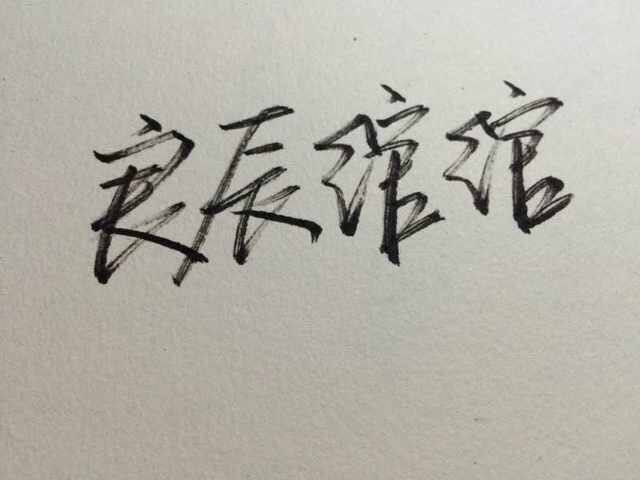 良辰绾绾